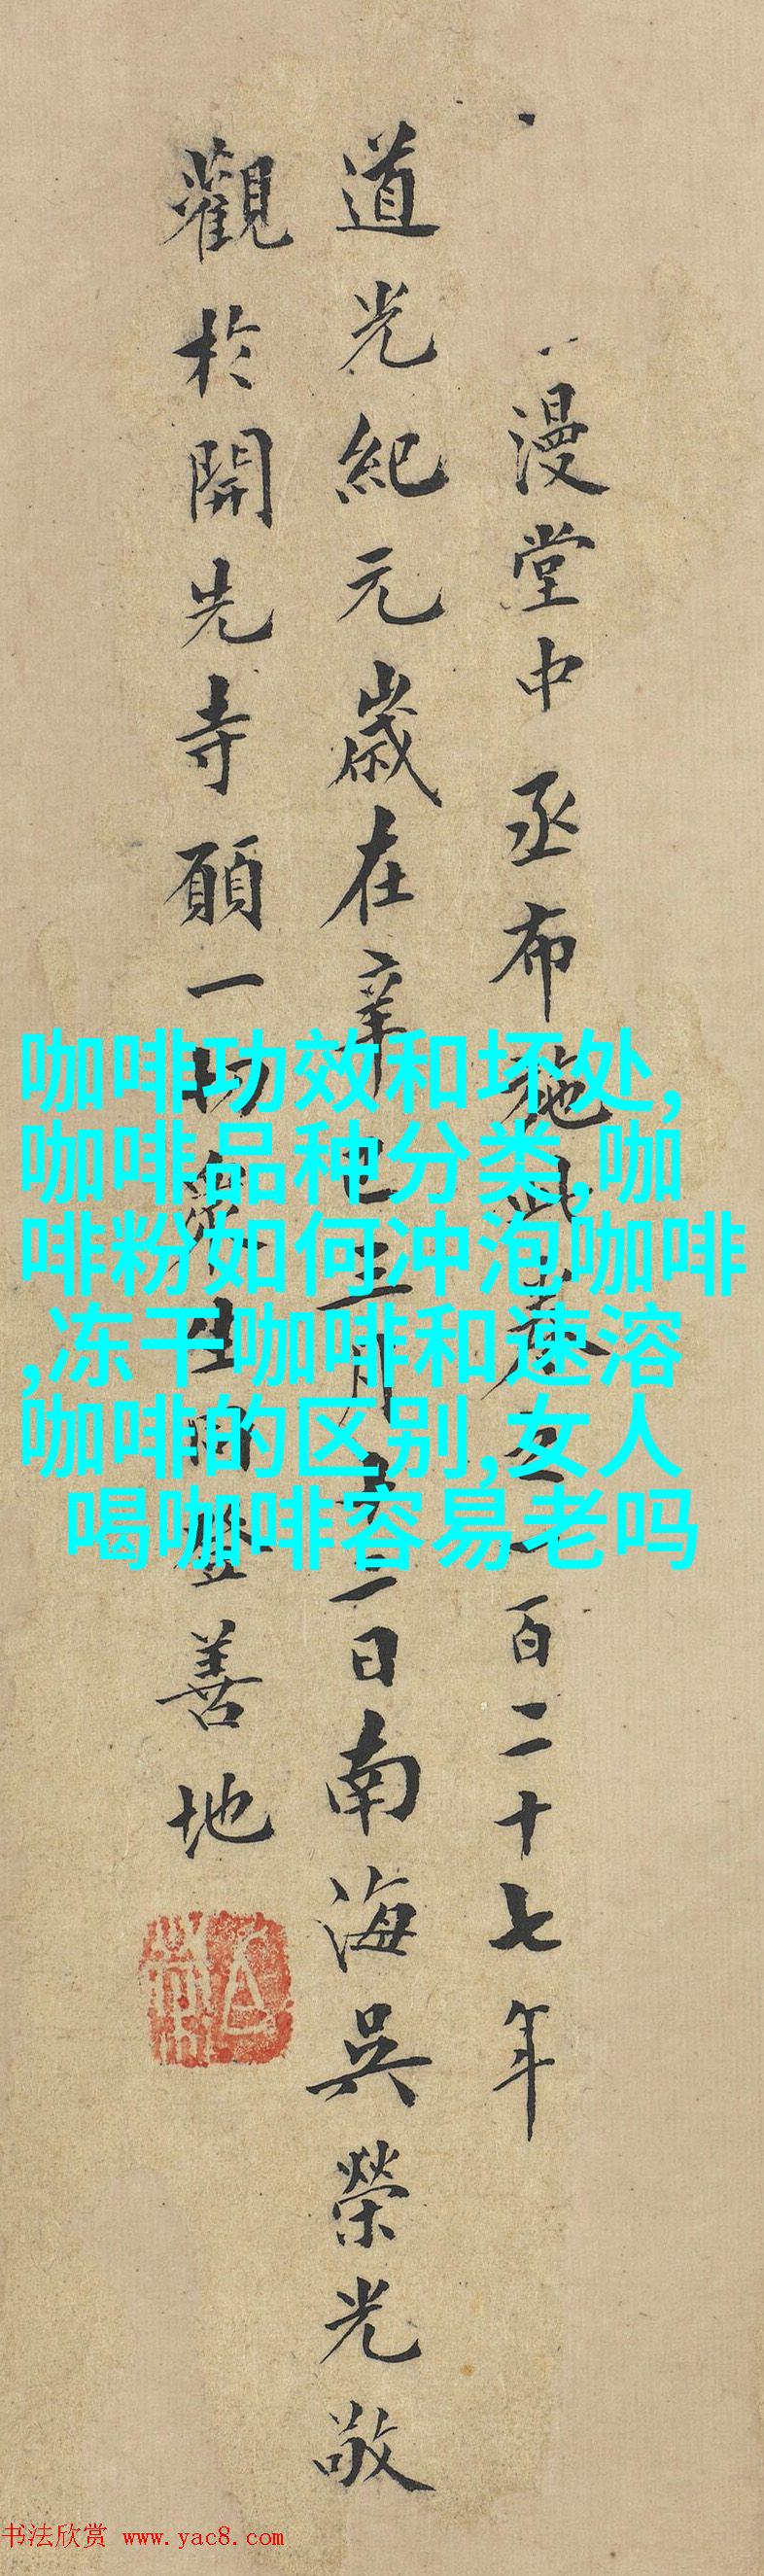 漫堂中丞布施此卷之一百二十七年
道光紀元歲在辛巳三月廿二日南海吳榮光敬
觀於開先寺願一切衆生同登善地
咖啡功效和坏处,
咖啡品种分类,咖
啡粉如何冲泡咖啡
,冻干咖啡和速溶
咖啡的区别,女人
喝咖啡容易老吗
书法欣赏 www.yac8.com